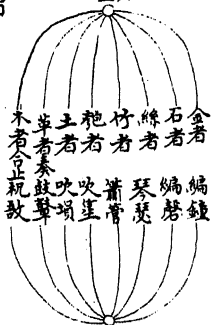 金者 編鍾
石者 編磬
絲者 琴瑟
竹者 簫管
匏者 吹笙
土者 吹塤
革者奏鼓鼙
木者合止柷敔